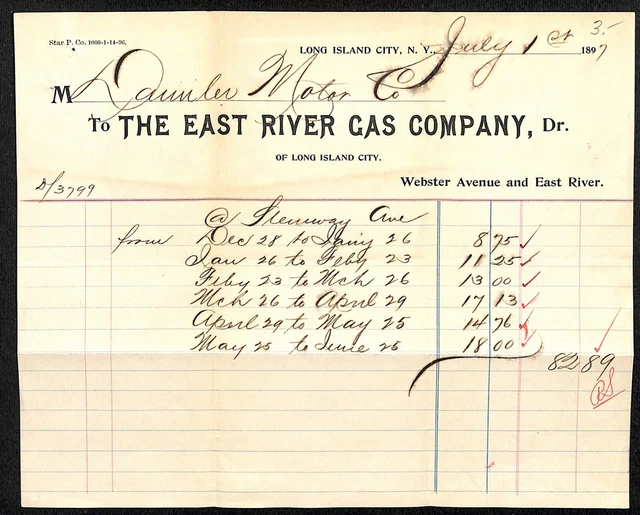 3.-
Star P. Co. 1000-1-14-96.
LONG ISLAND CITY, N. Y., July 1st 1897
M Daimler Motor Co
To THE EAST RIVER GAS COMPANY, Dr.
OF LONG ISLAND CITY.
D/3799
Webster Avenue and East River.
@ Steinway Ave
from Dec 28 to Jany 26 8 75
Jan 26 to Feby 23 11 25
Feby 23 to Mch 26 13 00
Mch 26 to April 29 17 13
April 29 to May 25 14 76
May 25 to June 25 18 00
82 89